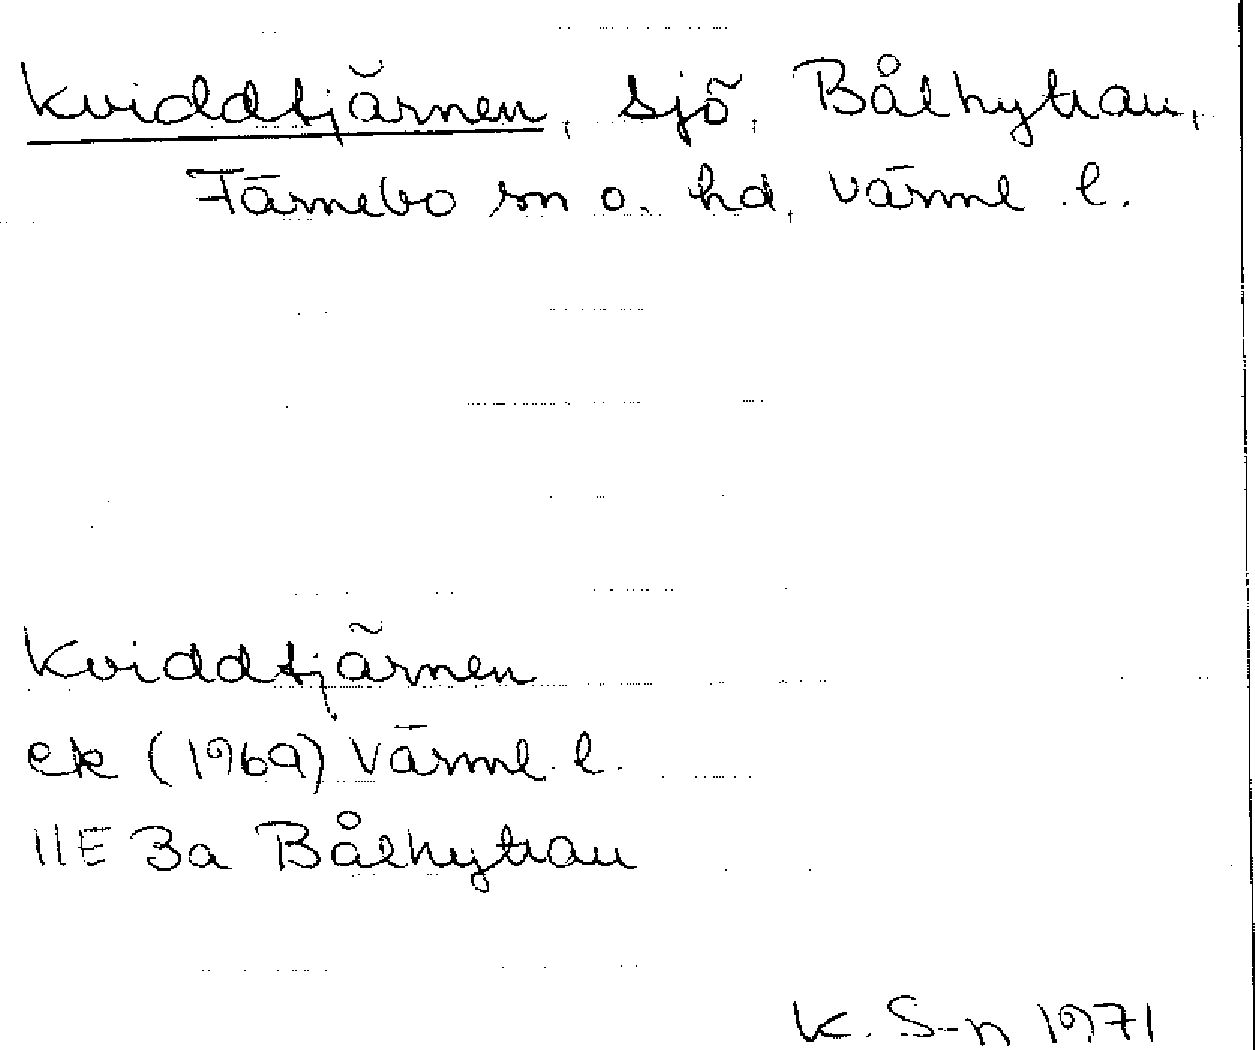 Kviddtjärnen, sjö, Bålhyttan,
Färnebo sn o. hd, Värml. l.
Kviddtjärnen
ek (1969) Värml. l.
11E 3a Bålhyttan
K. S-n 1971